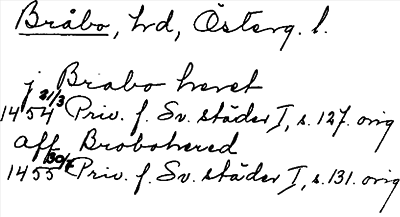 Bråbo, hd, Österg. l.
j Brabo heret
1454 31/3 Priv. f. Sv. städer I, s. 127. orig
aff Brobohered
1455 30/7 Priv. f. Sv. städer I, s. 131. orig